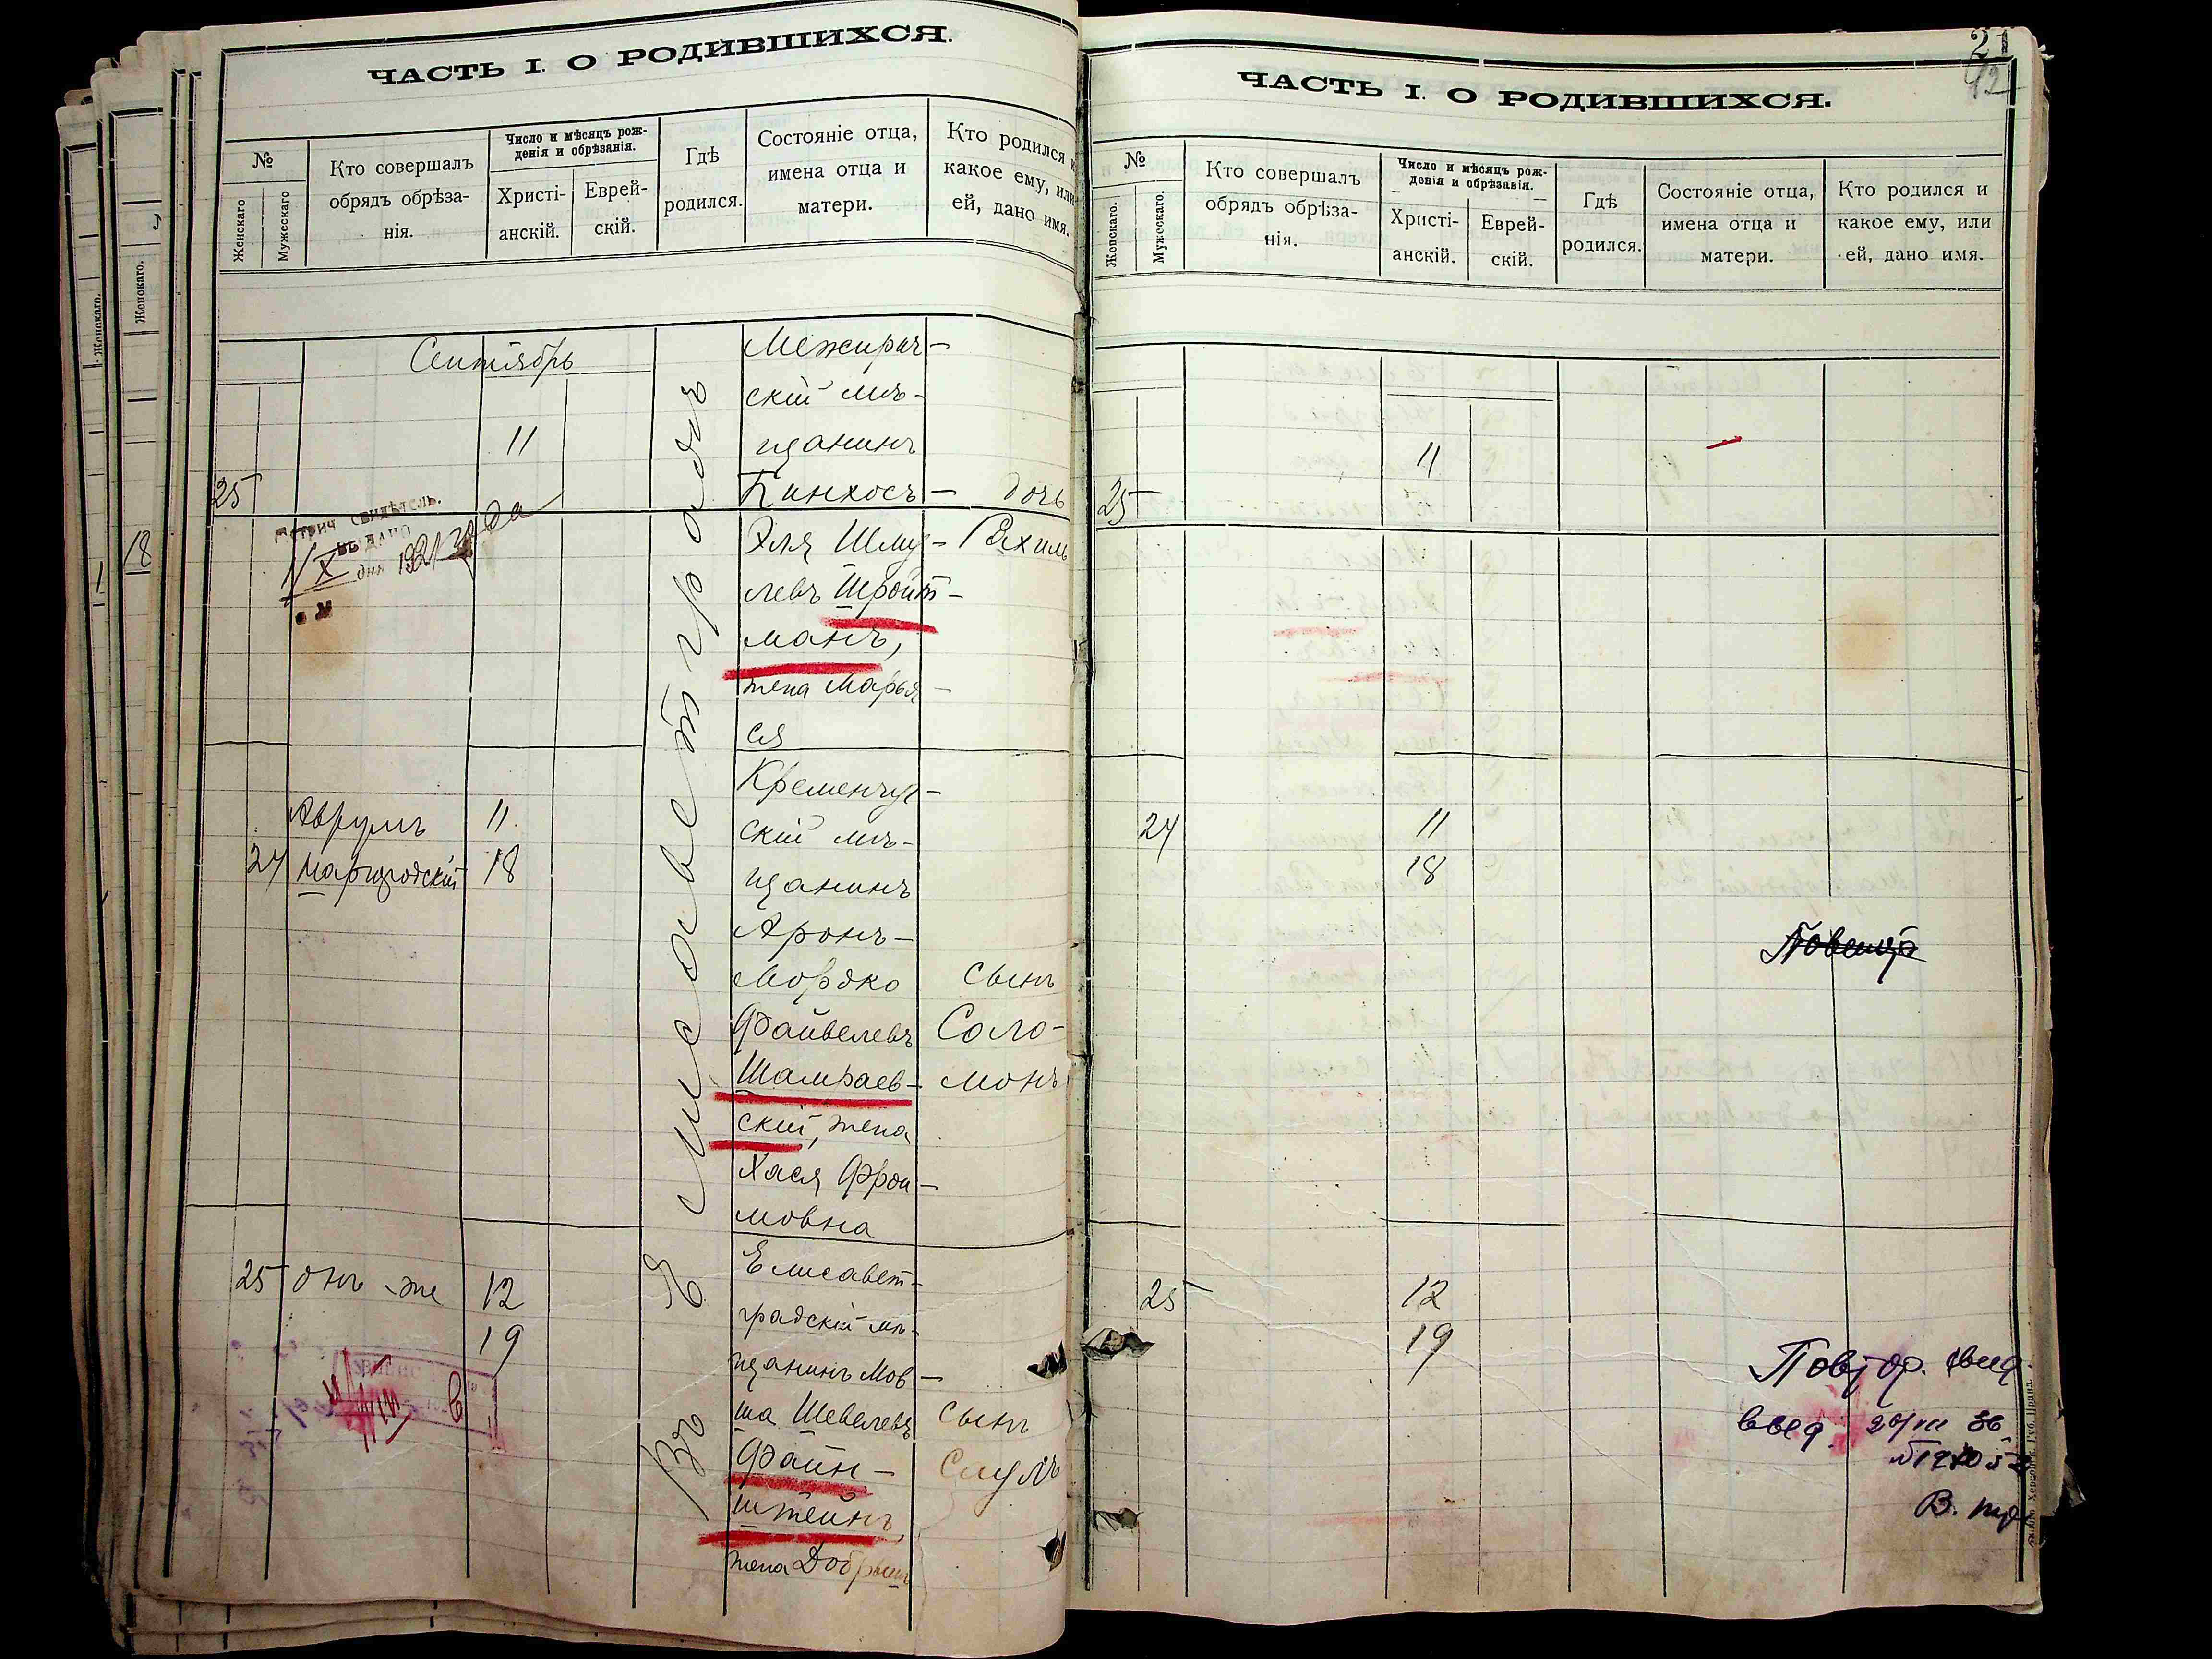 ЧАСТЬ I. О РОДИВШИХСЯ.
№
Женскаго
Мужескаго
Кто совершалъ
обрядъ обрѣза-
нія.
Число и мѣсяцъ рож-
денія и обрѣзанія.
Христі-
анскій.
Еврей-
скій.
Гдѣ
родился.
Состояніе отца,
имена отца и
матери.
Кто родился и
какое ему, или
ей, дано имя.
Сентябрь
Въ Елисаветградѣ
25
11
Межирич-
скій мѣ-
щанинъ
Пинхосъ-
Эля Шму-
левъ Шройт-
манъ,
жена Марья-
ся
дочь
Рахиль
Метрич свидѣтель.
ВЫДАНО
дня
24
Аврумъ
11
18
Кременчуг-
скій мѣ-
щанинъ
Аронъ-
Мордко
Файвелевъ
Шамраев-
скій, жена
Хася Фрои-
мовна
сынъ
Соло-
монъ
25
онъ-же
12
19
Елисавет-
градскій мѣ-
щанинъ Мов-
ша Шевелевъ
Файн-
штейнъ,
жена
сынъ
Смулъ
ЧАСТЬ I. О РОДИВШИХСЯ.
21
42
№
Женскаго.
Мужескаго.
Кто совершалъ
обрядъ обрѣза-
нія.
Число и мѣсяцъ рож-
денія и обрѣзанія.
Христі-
анскій.
Еврей-
скій.
Гдѣ
родился.
Состояніе отца,
имена отца и
матери.
Кто родился и
какое ему, или
ей, дано имя.
25
11
24
11
18
25
12
19
Повтор. свид.
18